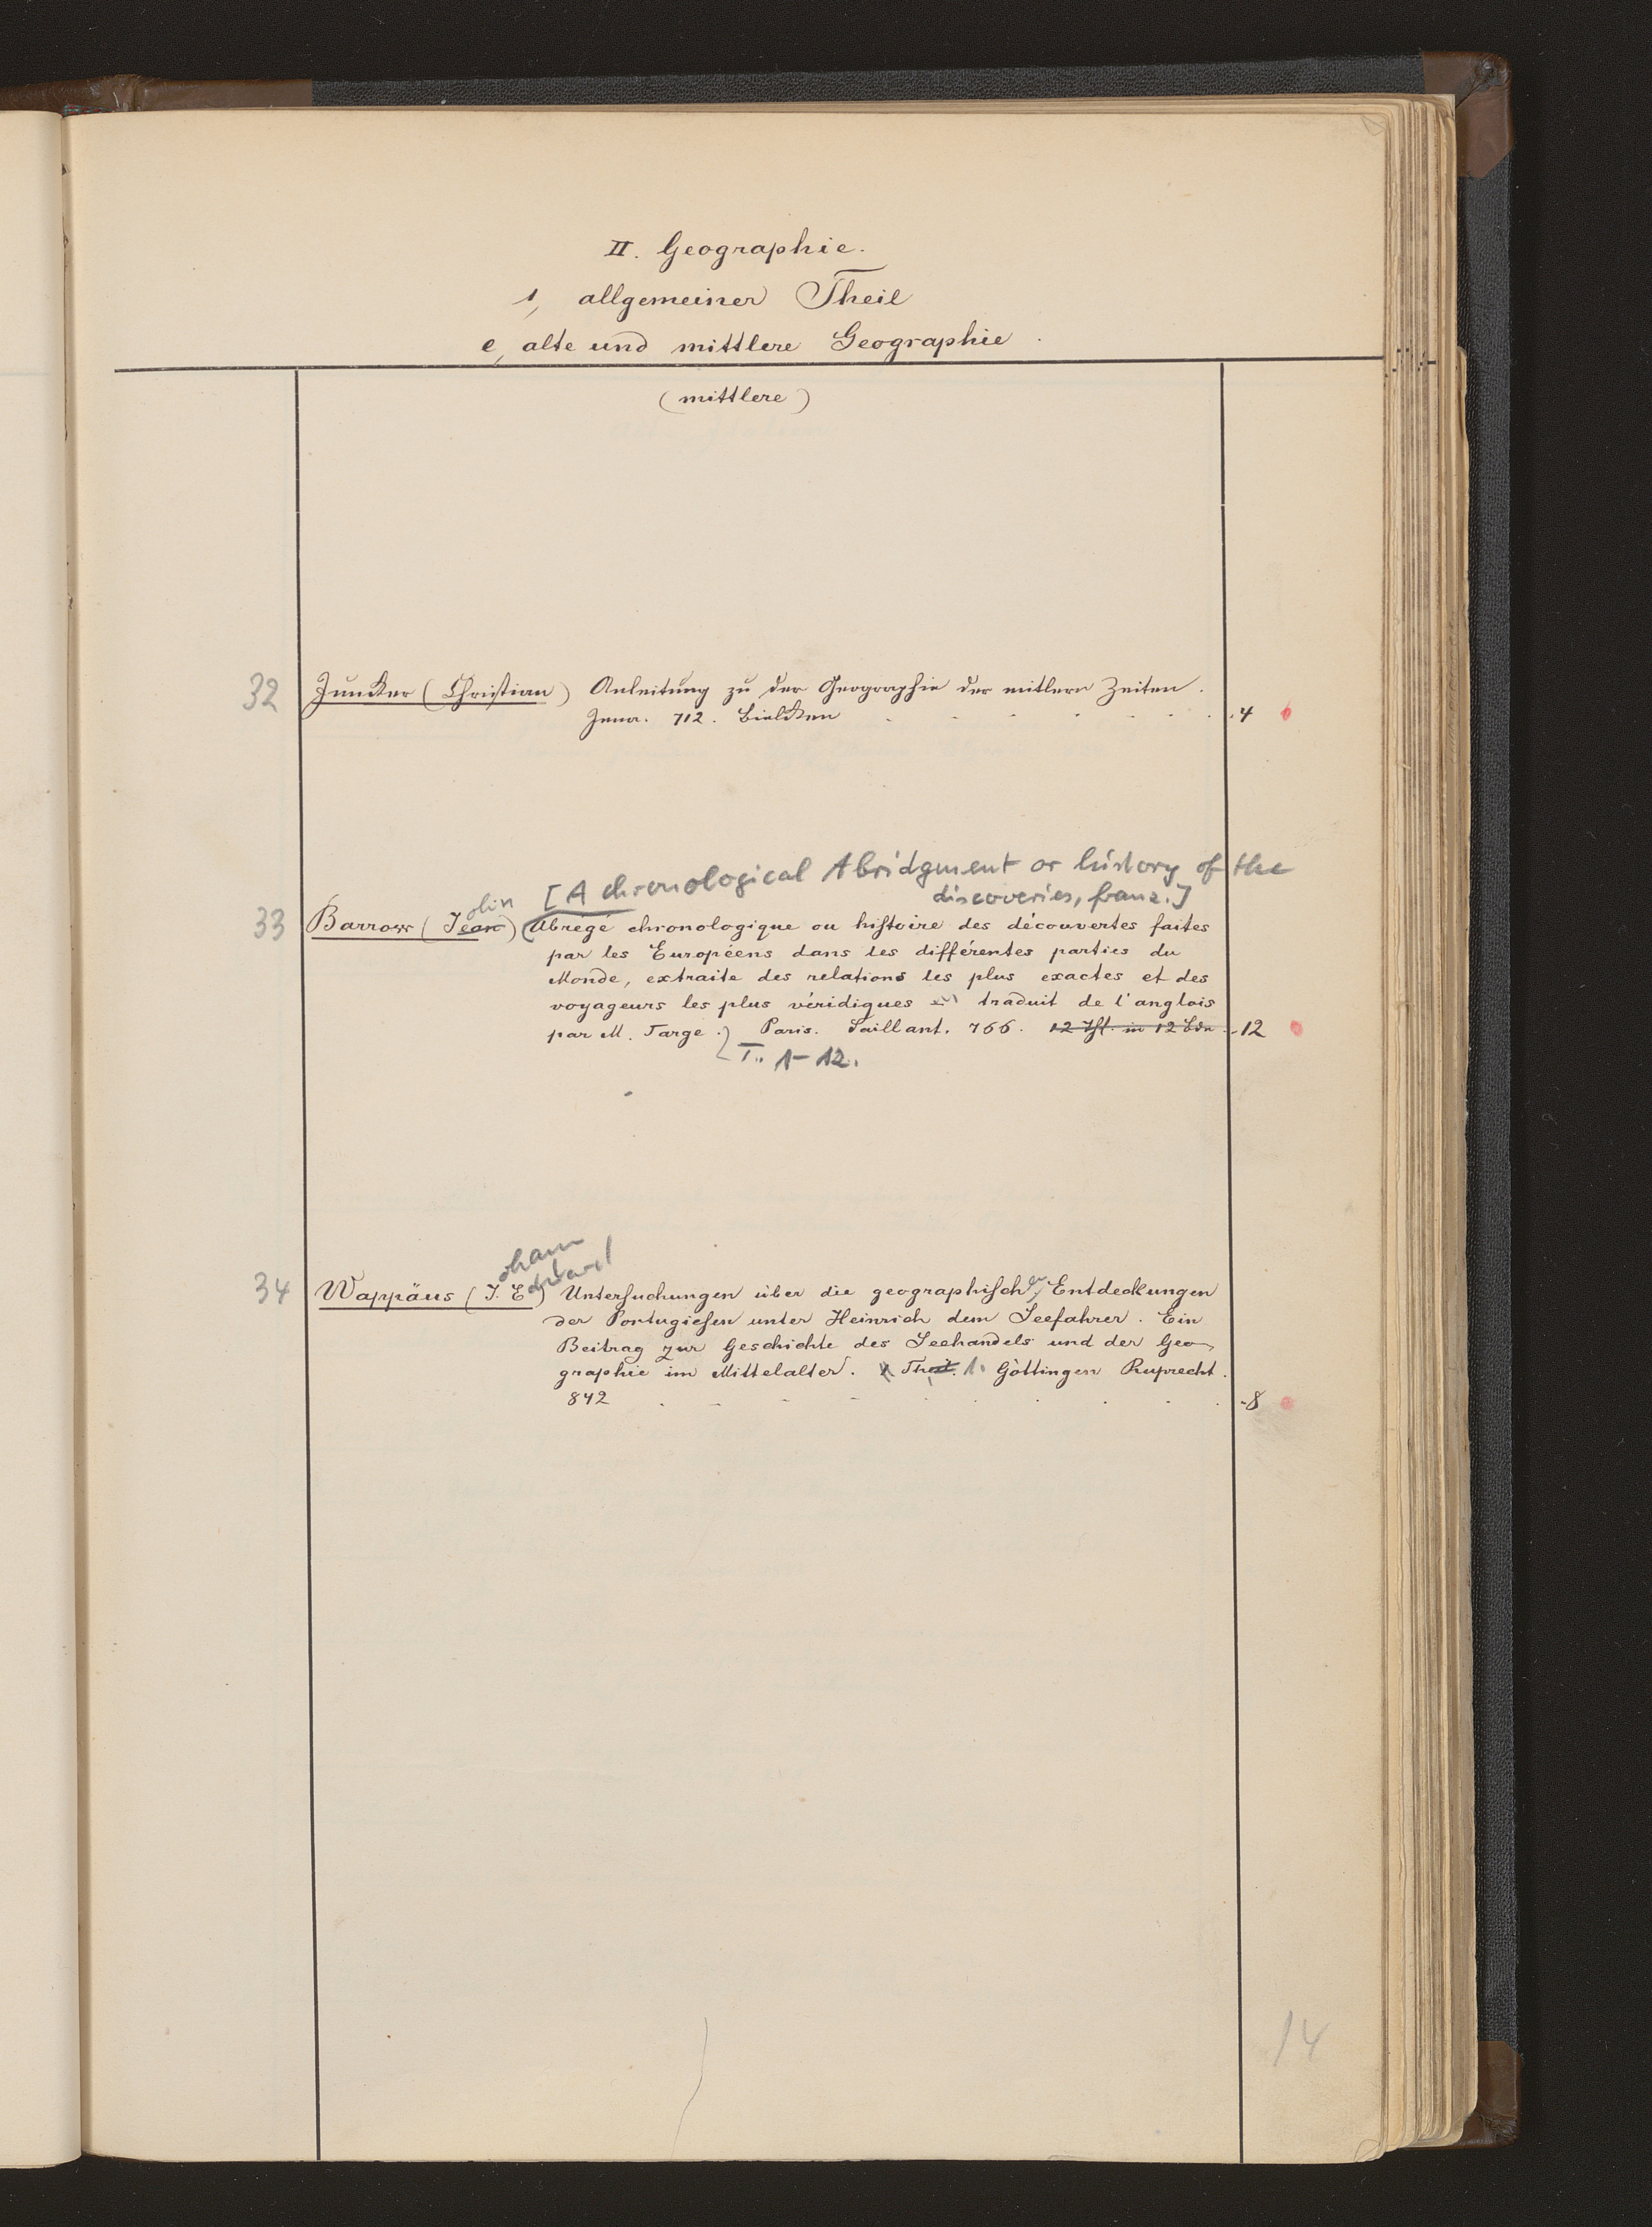 II. Geographie.
1, allgemeiner Theil
e, alte und mittlere Geographie.
(mittlere)
32 Juncker (Christian) Anleitung zu der Geographie der mitlern Zeiten.
Jena. 712. Bielcken . . . . . . 4
[A chronological Abridgment or history of the
discoveries, franz.]
ohn
33 Barrow (Jean) (Abrégé chronologique ou histoire des découvertes faites
par les Européens dans les différentes parties du
Monde, extraite des relations les plus exactes et des
voyageurs les plus véridiques traduit de l'anglois
par M. Targe.) Paris. Saillant. 766. 12 Thl. in 12 Bdn - 12
T. 1-12.
ohann
duard
34 Wappäus (J. E.) Untersuchungen über die geographischen Entdeckungen
der Portugiesen unter Heinrich dem Seefahrer. Ein
Beitrag zur Geschichte des Seehandels und der Geo-
graphie im Mittelalter. Theil. 1. Göttingen Ruprecht.
842 . . . . . . . . . - 8
14